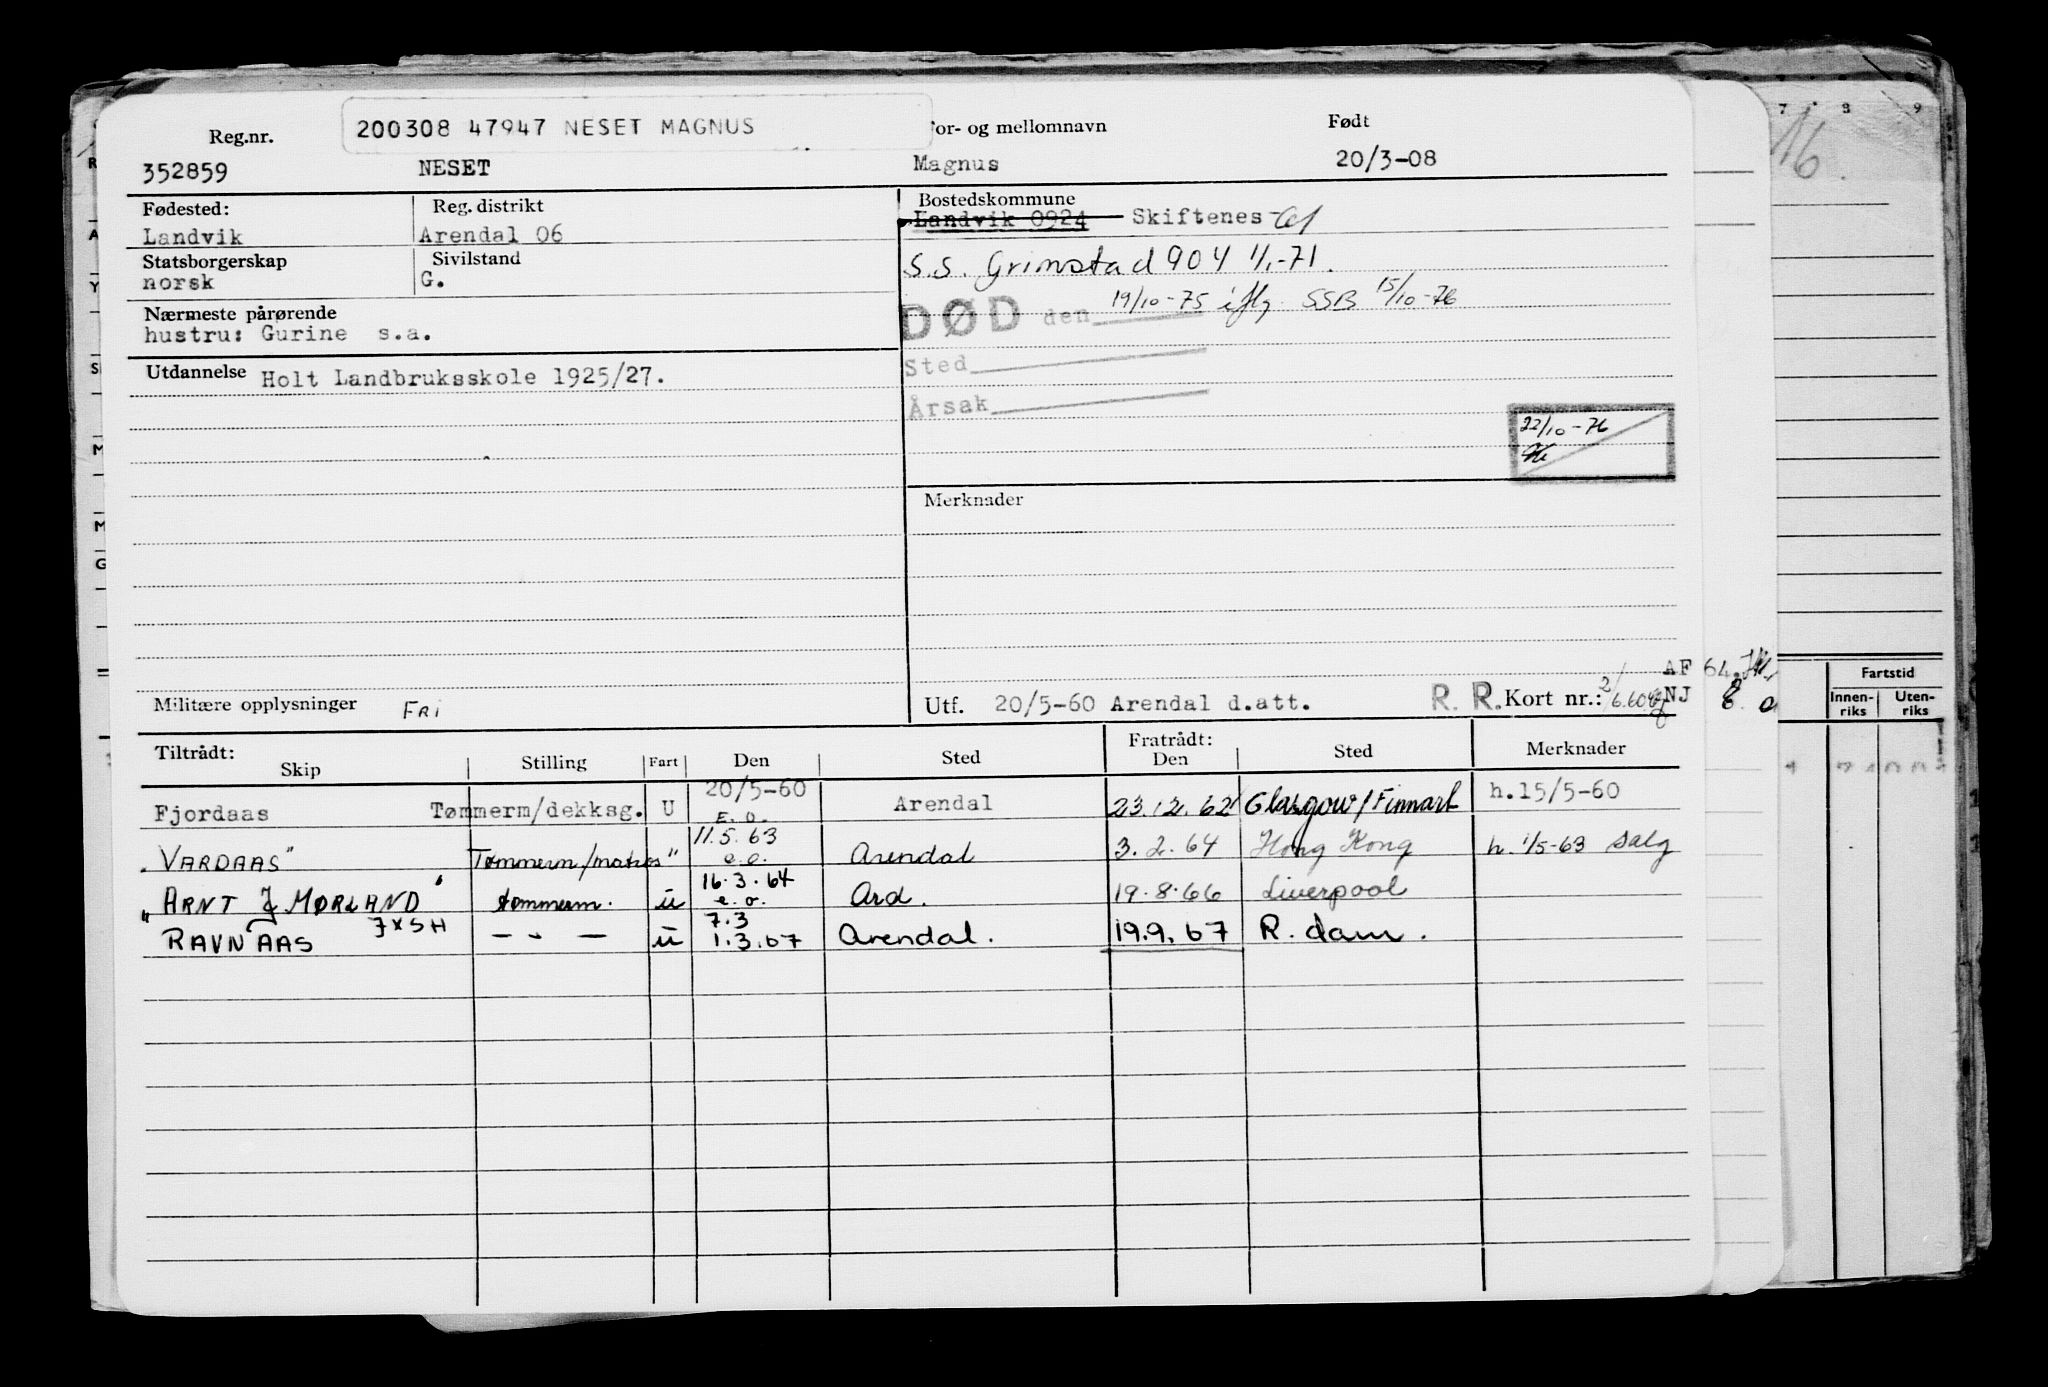 Reg.nr. 200308 47947 NESET MAGNUS For- og mellomnavn Født
352859 NESET Magnus 20/3-08
Fødested: Reg. distrikt Bostedskommune
Landvik Arendal 06 Landvik 0924 Skiftenes
Statsborgerskap Sivilstand
norsk G. S.S. Grimstad 904 1/1-71.
Nærmeste pårørende DØD den 19/10-75 iflg. SSB 15/10-76
hustru: Gurine s.a.
Utdannelse Holt Landbruksskole 1925/27. Sted
Årsak
22/10-76
Merknader
Militære opplysninger FRI Utf. 20/5-60 Arendal d.att. R. R. Kort nr.:
AF 64.
NJ
Tiltrådt: Fratrådt:
Skip Stilling Fart Den Sted Den Sted Merknader
Fjordaas Tømmerm/dekksg. U 20/5-60 E.O. Arendal 23.12.62 Glasgow/Finnart h.15/5-60
"VARDAAS" Tømmerm/matros " 11.5.63 e.o. Arendal 3.2.64 Hong Kong h. 1/5-63 Salg
"ARNT J MØRLAND" tømmerm. u 16.3.64 e.o. Ard. 19.8.66 Liverpool
RAVNAAS JXSH — " — u 7.3 1.3.67 Arendal. 19.9.67 R.dam.
7 8 9
16.
Fartstid
Innen-riks Uten-riks